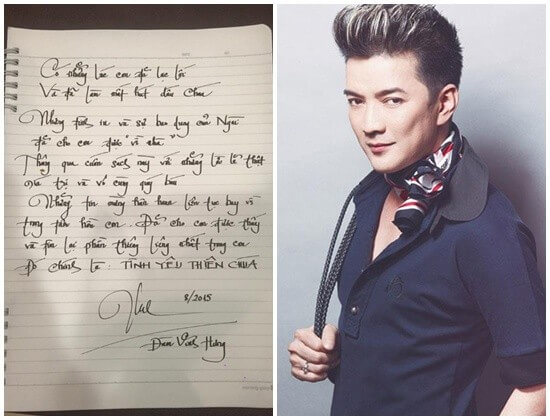 Có những lúc con đã lạc lối
Và đã làm mất dấu Chúa
Những tình và sự bao dung của Người
đã cho con được "về nhà".
Thông qua cuốn sách này với những lời lẽ thật
giá trị và vô cùng quý báu
Những tin mừng hân hoan liên tục bay về
trong tâm hồn con. Đã cho con được thấy
và tìm lại phần thiêng liêng nhất trong con
Đó chính là : TÌNH YÊU THIÊN CHÚA
8/2015
Đàm Vĩnh Hưng